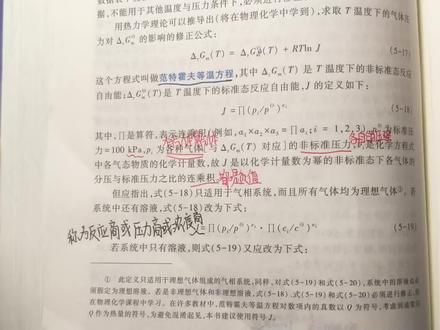 据,不能用于其他温度与压力条件下,必须进行
用热力学理论可以推导出(将在物理化学中学到),求取 T 温度下的气体
为对 ΔrGm⊖ 的影响的修正公式:
ΔrGm(T) = ΔrGm⊖(T) + RTln J (5-17)
这个方程式叫做范特霍夫等温方程,其中 ΔrGm(T) 是 T 温度下的非标准态反应
自由能;ΔrGm⊖(T)是 T 温度下的标准态反应自由能,J 的定义如下:
J = ∏(pi/p⊖)^νi (5-18)
其中,∏是算符,表示连乘积(例如,a1×a2×a3 = ∏ai; i = 1,2,3) 为标准压
力=100 kPa,pi 为各种气体(与 ΔrGm(T) 对应)的非标准压力, 是化学方程式
中各气态物质的化学计量数,故 J 是以化学计量数为幂的非标准态下各气体的
分压与标准压力之比的连乘积。
但应指出,式(5-18)只适用于气相系统,而且所有气体均为理想气体①。若
系统中还有溶液,式(5-18)改为下式:
称为反应商或压力商或浓度商
= ∏(pi/p⊖)^νi · ∏(ci/c⊖)^νi (5-19)
若系统中只有溶液,则式(5-19)又应改为下式:
① 此定义只适用于理想气体组成的气相系统,同样,对式(5-19)和式(5-20),系统中的溶液
须假定为理想溶液。若是非理想气体和非理想溶液,式(5-18)、式(5-19)和式(5-20)必须进行修正,
在物理化学课程中学习。在许多教材中,范特霍夫等温方程对数项内的真数以 Q 为符号,考虑到
Q 作为热量的符号,为避免混淆起见,本书建议使用符号 J。